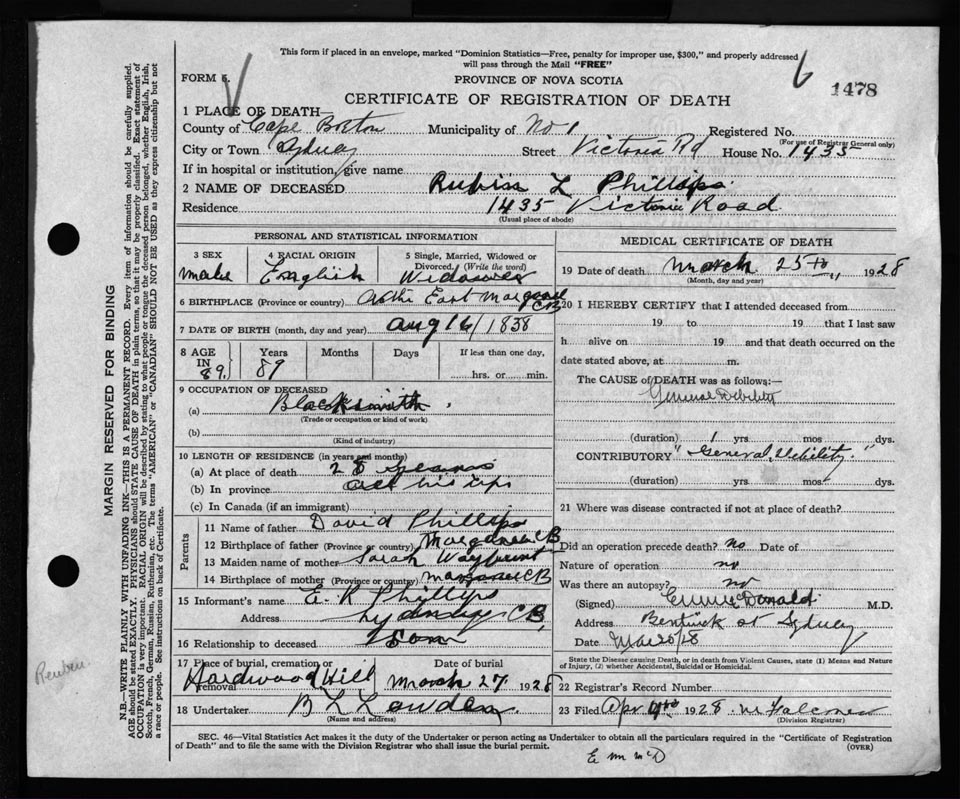 This form if placed in an envelope, marked "Dominion Statistics—Free, penalty for improper use, $300," and properly addressed
will pass through the Mail "FREE"
FORM 6. PROVINCE OF NOVA SCOTIA
6
1478
CERTIFICATE OF REGISTRATION OF DEATH
1 PLACE OF DEATH—
County of Cape Breton Municipality of No 1 Registered No.
(For use of Registrar General only)
City or Town Sydney Street Victoria Rd House No. 1435
If in hospital or institution, give name
2 NAME OF DECEASED L Phillips
Residence 1435 Victoria Road
(Usual place of abode)
PERSONAL AND STATISTICAL INFORMATION
3 SEX 4 RACIAL ORIGIN 5 Single, Married, Widowed or Divorced (Write the word)
male English Widower
6 BIRTHPLACE (Province or country) East Margaree CB
7 DATE OF BIRTH (month, day and year) Aug 16/1838
8 AGE IN Years Months Days If less than one day,
89 89 hrs. or min.
9 OCCUPATION OF DECEASED
(a) Blacksmith
(Trade or occupation or kind of work)
(b)
(Kind of industry)
10 LENGTH OF RESIDENCE (in years and months)
(a) At place of death 28 years
(b) In province all his life
(c) In Canada (if an immigrant)
Parents
11 Name of father David Phillips
12 Birthplace of father (Province or country) Margaree CB
13 Maiden name of mother Sarah
14 Birthplace of mother (Province or country) Margaree CB
15 Informant's name E. R Phillips
Address Sydney CB,
16 Relationship to deceased Son
17 Place of burial, cremation or removal Date of burial
Hardwood Hill March 27 1928
18 Undertaker B L
(Name and address)
MEDICAL CERTIFICATE OF DEATH
19 Date of death March 25th 1928
(Month, day and year)
20 I HEREBY CERTIFY that I attended deceased from
19 to 19 that I last saw
h alive on 19 and that death occurred on the
date stated above, at m.
The CAUSE of DEATH was as follows:—
General Debility
(duration) 1 yrs. mos. dys.
CONTRIBUTORY "General Debility"
(duration) yrs. mos. dys.
21 Where was disease contracted if not at place of death?
Did an operation precede death? no Date of
Nature of operation no
Was there an autopsy? no
(Signed) McDonald M.D.
Address Bentinck st Sydney
Date
State the Disease causing Death, or in death from Violent Causes, state (1) Means and Nature
of Injury, (2) whether Accidental, Suicidal or Homicidal.
22 Registrar's Record Number
23 Filed Apr 1928
(Division Registrar)
SEC. 46—Vital Statistics Act makes it the duty of the Undertaker or person acting as Undertaker to obtain all the particulars required in the "Certificate of Registration
of Death" and to file the same with the Division Registrar who shall issue the burial permit. (OVER)
E M McD
MARGIN RESERVED FOR BINDING
N.B.—WRITE PLAINLY WITH UNFADING INK—THIS IS A PERMANENT RECORD. Every item of information should be carefully supplied.
AGE should be stated EXACTLY. PHYSICIANS should STATE CAUSE OF DEATH in plain terms, so that it may be properly classified. Exact statement of
OCCUPATION is very important. RACIAL ORIGIN will be described by stating to what people or tongue the deceased person belonged, whether English, Irish,
Scotch, French, German, Russian, Ruthenian, etc. The terms "AMERICAN" or "CANADIAN" SHOULD NOT BE USED as they express citizenship but not
a race or people. See instructions on back of Certificate.
Reuben